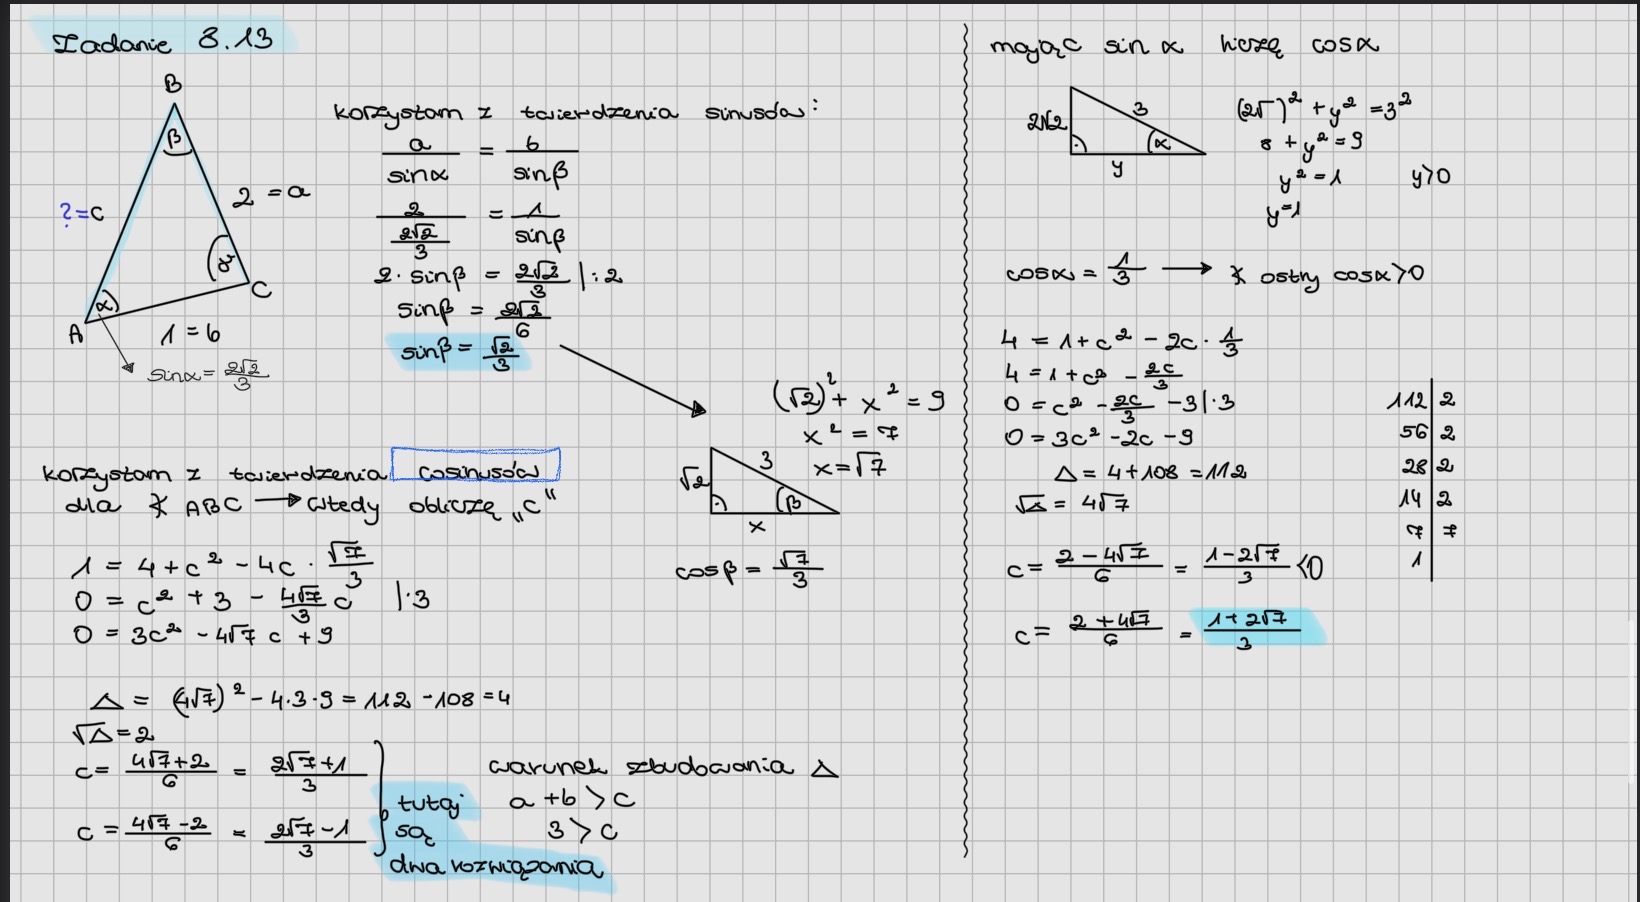 Zadanie 8.13
B
β
2 = a
?=c
γ
C
α
A
1 = b
sinα = 2√2/3
korzystam z twierdzenia sinusów:
a/sinα = b/sinβ
2/(2√2/3) = 1/sinβ
2 · sinβ = 2√2/3 |:2
sinβ = 2√2/6
sinβ = √2/3
(√2)² + x² = 9
x² = 7
x = √7
√2
3
β
x
cosβ = √7/3
korzystam z twierdzenia cosinusów
dla ∢ ABC → wtedy obliczę „c"
1 = 4 + c² - 4c · √7/3
0 = c² + 3 - 4√7/3 c |·3
0 = 3c² - 4√7 c + 9
Δ = (4√7)² - 4·3·9 = 112 - 108 = 4
√Δ = 2
c = (4√7+2)/6 = (2√7+1)/3
c = (4√7-2)/6 = (2√7-1)/3
tutaj
są
dwa rozwiązania
warunek zbudowania Δ
a + b > c
3 > c
mając sin α liczę cosα
2√2
3
α
y
(2√ )² + y² = 3²
8 + y² = 9
y² = 1 y>0
y=1
cosα = 1/3 → ∢ ostry cosα>0
4 = 1 + c² - 2c · 1/3
4 = 1 + c² - 2c/3
0 = c² - 2c/3 - 3 |·3
0 = 3c² - 2c - 9
Δ = 4 + 108 = 112
√Δ = 4√7
c = (2 - 4√7)/6 = (1 - 2√7)/3 <0
c = (2 + 4√7)/6 = (1 + 2√7)/3
112 | 2
56 | 2
28 | 2
14 | 2
7 | 7
1 |